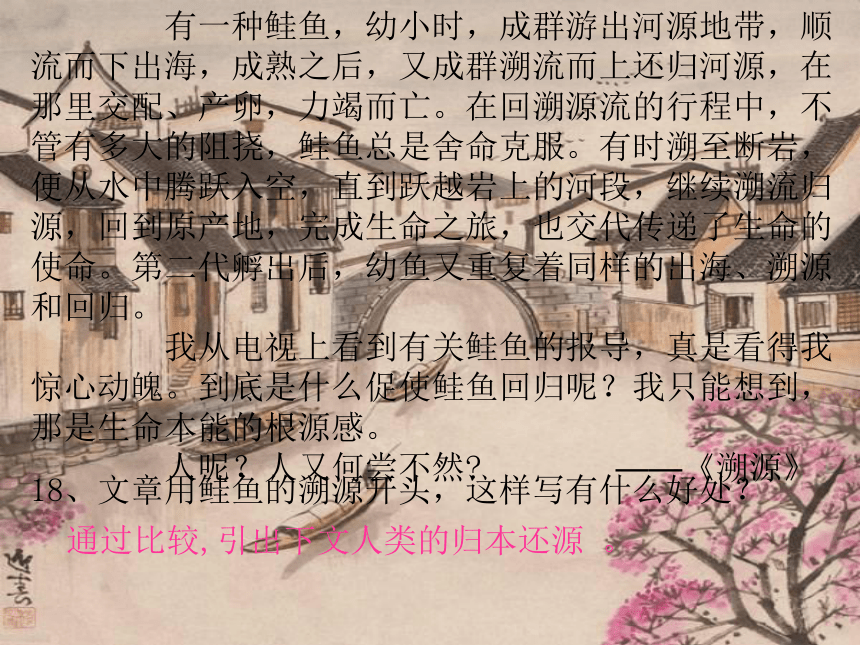 有一种鲑鱼，幼小时，成群游出河源地带，顺
流而下出海，成熟之后，又成群溯流而上还归河源，在
那里交配、产卵，力竭而亡。在回溯源流的行程中，不
管有多大的阻挠，鲑鱼总是舍命克服。有时溯至断岩，
便从水中腾跃入空，直到跃越岩上的河段，继续溯流归
源，回到原产地，完成生命之旅，也交代传递了生命的
使命。第二代孵出后，幼鱼又重复着同样的出海、溯源
和回归。
我从电视上看到有关鲑鱼的报导，真是看得我
惊心动魄。到底是什么促使鲑鱼回归呢？我只能想到，
那是生命本能的根源感。
人呢？人又何尝不然？ ——《溯源》
18、文章用鲑鱼的溯源开头，这样写有什么好处？
通过比较,引出下文人类的归本还源 .